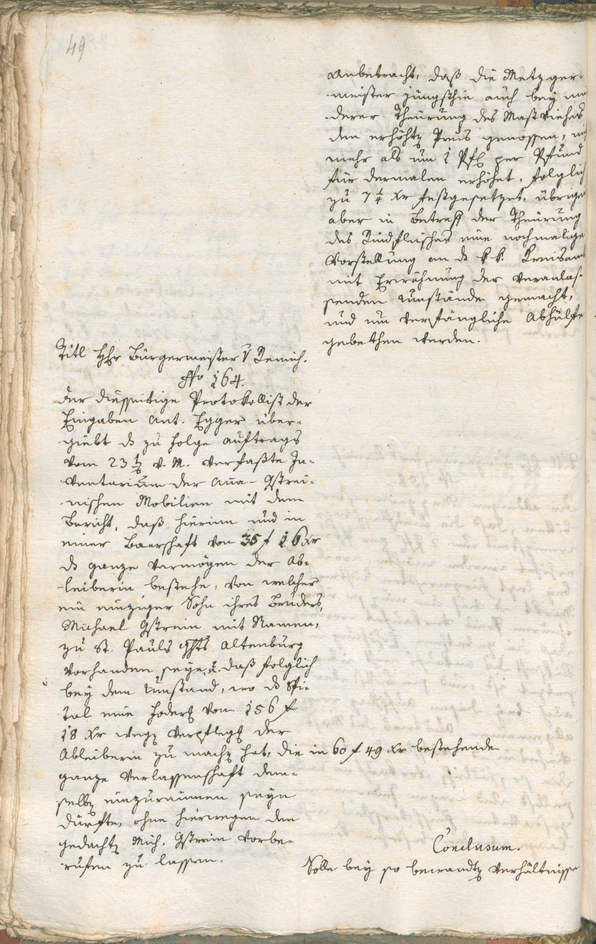 49
Anbetracht, daß die Metzger-
meister jüngsthin auch bey
derer Theurung des Mastviehes
den erhöhtn Preis genossen,
mehr als um 1 Pfl per Pfund
für dermalen erhöhet, folglich
zu 7 1/4 xr festgesetzet, übrigen
aber in Betreff der Theurung
des Rindfleisches eine nochmalige
Vorstellung an das k. k. Kreisamt
mit Erwähnung der veranlas-
senden Umstände gemacht,
und um verfängliche Abhülfe
gebethen werden.
Titl Hhr. Bürgermeister v Remich.
No 164.
Der diesseitige Protokollist der
Eingaben Ant. Egger über-
giebt das zu Folge Auftrags
vom 23t v. M. verfaßte In-
ventarium der Anna Gstrei-
nischen Mobilien mit dem
Bericht, daß hierinn und in
einer Baarschaft von 35 f 16 xr
das ganze Vermögen der Ab-
leiberin bestehe, von welcher
ein einziger Sohn ihres Bruders,
Michael Gstrein mit Namen,
zu St. Pauls Ghts Altenburg
vorhanden seye, daß folglich
bey dem Umstand, wo das Spi-
tal eine Foderg von 156 f
18 xr wegen Verpflegg der
Ableiberin zu machn hat, die in 60 f 49 xr bestehende
ganze Verlassenschaft dem-
selbn einzuraumen seyn
dürfte, ohne hierwegen den
gedachtn Mich. Gstrein vorbe-
rufen zu lassen.
Conclusum.
Solle bey so bewandtn Verhältnisse